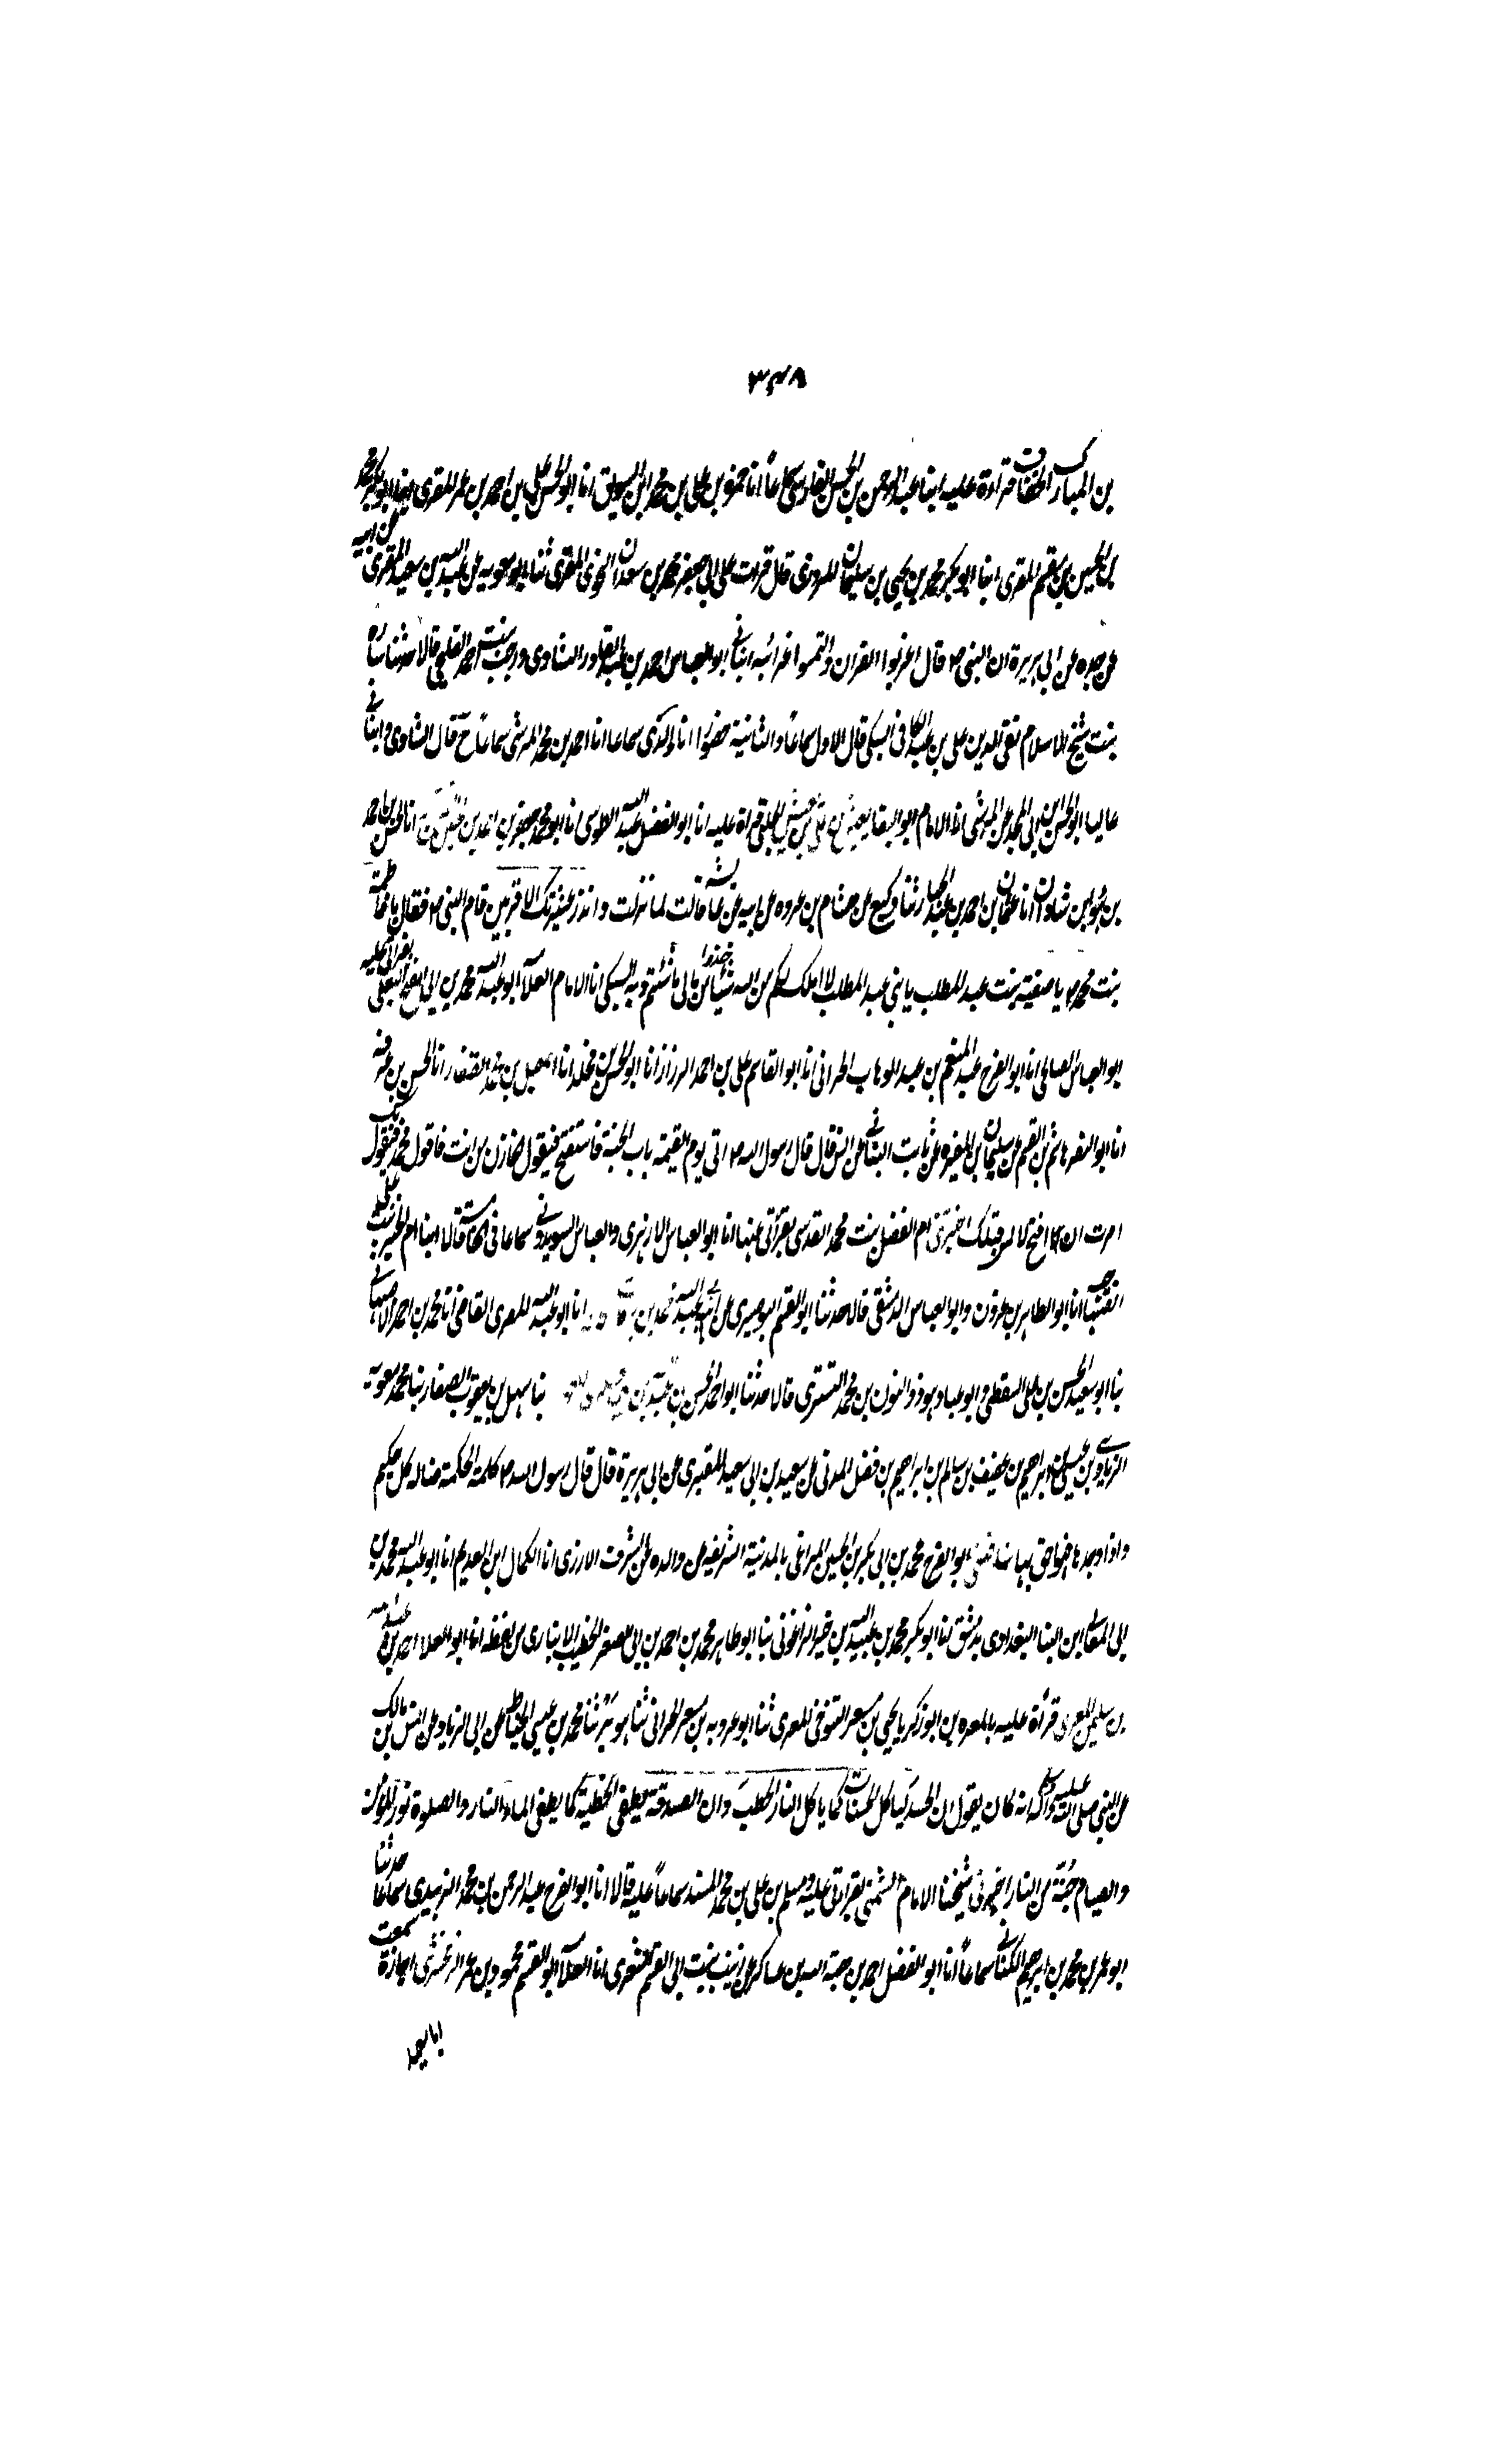 ٣٤٨
بن المبارك الخفاف قراءة عليه انبا عبد الرحمن بن الحسن الفارسي سماعاً انا حمزة بن علي بن محمد ابن السويق انا ابو الحسن علي بن احمد بن عمر المقرى ابو بكر محمد
بن الحسين بن مقسم المقرى انبا ابو بكر محمد بن يحيى بن سليمان المروزى قال قرات على ابي جعفر محمد بن سعدان النحوى المقرى ثنا ابو معويه عن عبد الله بن سعيد المقبرى عن ابيه
عن جده عن ابي هريرة ان النبي ص قال اعربوا القران والتمسوا غرائبه انبانى ابو العباس احمد بن عبد القادر الشاوى ورجب بنت احمد القليجي قالا حدثتنا سارة
بنت شيخ الاسلام تقي الدين علي بن عبد الكافي السبكي قال الاول سماعاً والثانية حضورا انا والدى سماعا انا احمد بن محمد سماعاً ح قال الشاوى وانبانى
عاليا ابو الحسن بن ابي المجد عن انا الامام ابو البقا يعيش بن علي بن يعيش الحلبي قراة عليه انا ابو الفضل عبد الله الطوسى انا ابو محمد جعفر بن احمد بن انا الحسن بن احمد
بن شاذان انا عثمان بن احمد بن عبد الجبار ثنا وكيع عن هشام بن عروه عن ابيه عن عائشة قالت لما نزلت وانذر عشيرتك الاقربين قام النبي ص فقال يا فاطمة
بنت محمد يا صفية بنت عبد المطلب يا بني عبد المطلب لا املك لكم من الله شيئا خذوا من مالى ما شئتم وبه السبكى انا الامام العلامة ابو عبد الله محمد بن ابي الفتح البعلى بقراتى عليه
ابو العباس انا ابو الفرج عبد المنعم بن عبد الوهاب الحرانى انا ابو القاسم علي بن احمد الرزاز انا ابو الحسن بن مخلد انا اسمعيل بن محمد الصفار انا الحسن بن عرفة
انا ابو النضر هاشم بن القسم عن سليمان بن المغيرة عن ثابت البنانى عن انس قال قال رسول الله ص اتى يوم القيمة باب الجنة فاستفتح فيقول الخازن من انت فاقول محمد فيقول بك
امرت ان لا افتح لاحد قبلك اخبرتنى ام الفضل بنت محمد القدسى بقراتى عليها انا ابو العباس والعباس السويدونى سماعا قالا انبا ام الخير بنت علي
انا ابو الطاهر بن عزون وابو العباس الدمشقى قالا حدثنا ابو القسم البوصيرى عن عبد الله محمد بن بركات انا ابو عبد الله القاضى انا محمد بن احمد الاصبهانى
بنا ابو سعيد الحسن بن علي السقطى وابو عباد ذو النون بن محمد التسترى قالا حدثنا ابو احمد الحسن بن عبد الله بن بنا سهل بن يعقوب الصفار بنا محمد معوية
الزيادى بن عيسى بن ابراهيم بن عفيف بن سالم بن ابراهيم بن فضل المدنى عن سعيد بن ابي سعيد المقبرى عن ابي هريرة قال قال رسول الله ص كلمة الحكمة ضالة كل حكيم
واذا وجدها فهو احق بها حدثنى ابو الفرج محمد بن ابي بكر بن الحسين المراغى بالمدينة الشريفة عن والده عن الشرف انا الكمال ابن العديم انا ابو عبد الله محمد بن
ابي المعالى ابن البنا البغدادى بدمشق انا ابو بكر محمد بن عبيد الله بن الزاغونى بنا ابو طاهر محمد بن احمد بن ابي الصقر الخطيب الانبارى من لفظه انا ابو العلا احمد بن عبد الله
بن سليمن المعرى قرأة عليه بالمعره بن ابو زكريا يحيى بن مسعر التنوخى المعرى ثنا ابو عروبه بن مسعر الحرانى ثنا هوبر ثنا محمد بن عيسى الخياط عن ابي الزناد عن انس بن مالك
عن النبي صلى الله عليه وآله وسلم انه كان يقول ان الحسد لياكل الحسنات كما ياكل النار الحطب وان الصدقة تطفى الخطية كما يطفى الماء النار والصلوة نور المؤمن
والصيام جنة من النار اخبرنى شيخنا الامام الشمنى بقراتى عليه ومسلم بن علي بن محمد المسند سماعاً عليه قالا انا ابو الفرج عبد الرحمن بن محمد الزبيدى سماعا حدثنا
ابو عمر بن محمد بن ابراهيم الكنانى سماعاً انا ابو الفضل احمد بن هبة الله بن عساكر عن زينب بنت ابي القسم الشعرى انا العلامة ابو القسم محمود بن عمر الزمخشرى اجازة سمعت